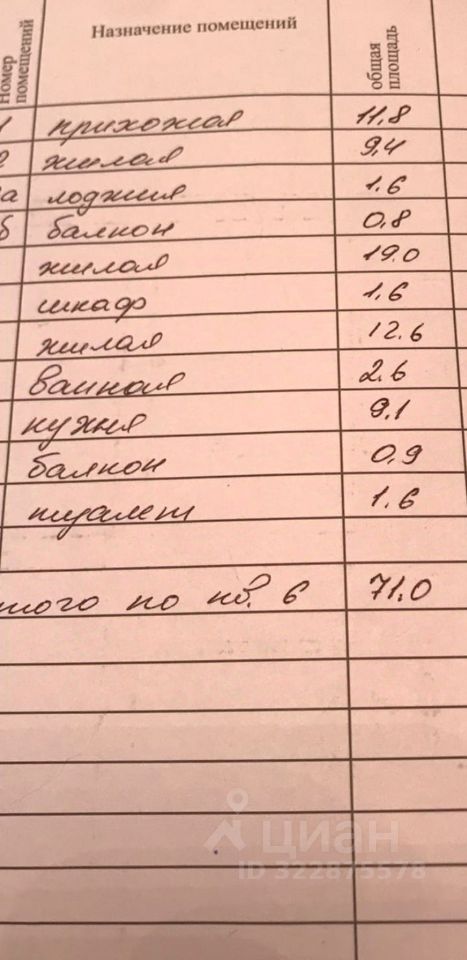 Номер помещений Назначение помещений общая площадь
1 прихожая 11.8
2 жилая 9,4
а лоджия 1.6
б балкон 0,8
жилая 19.0
шкаф 1.6
жилая 12.6
ванная 2.6
кухня 9.1
балкон 0,9
туалет 1.6
того по кв. 6 71.0
циан
ID 322875578